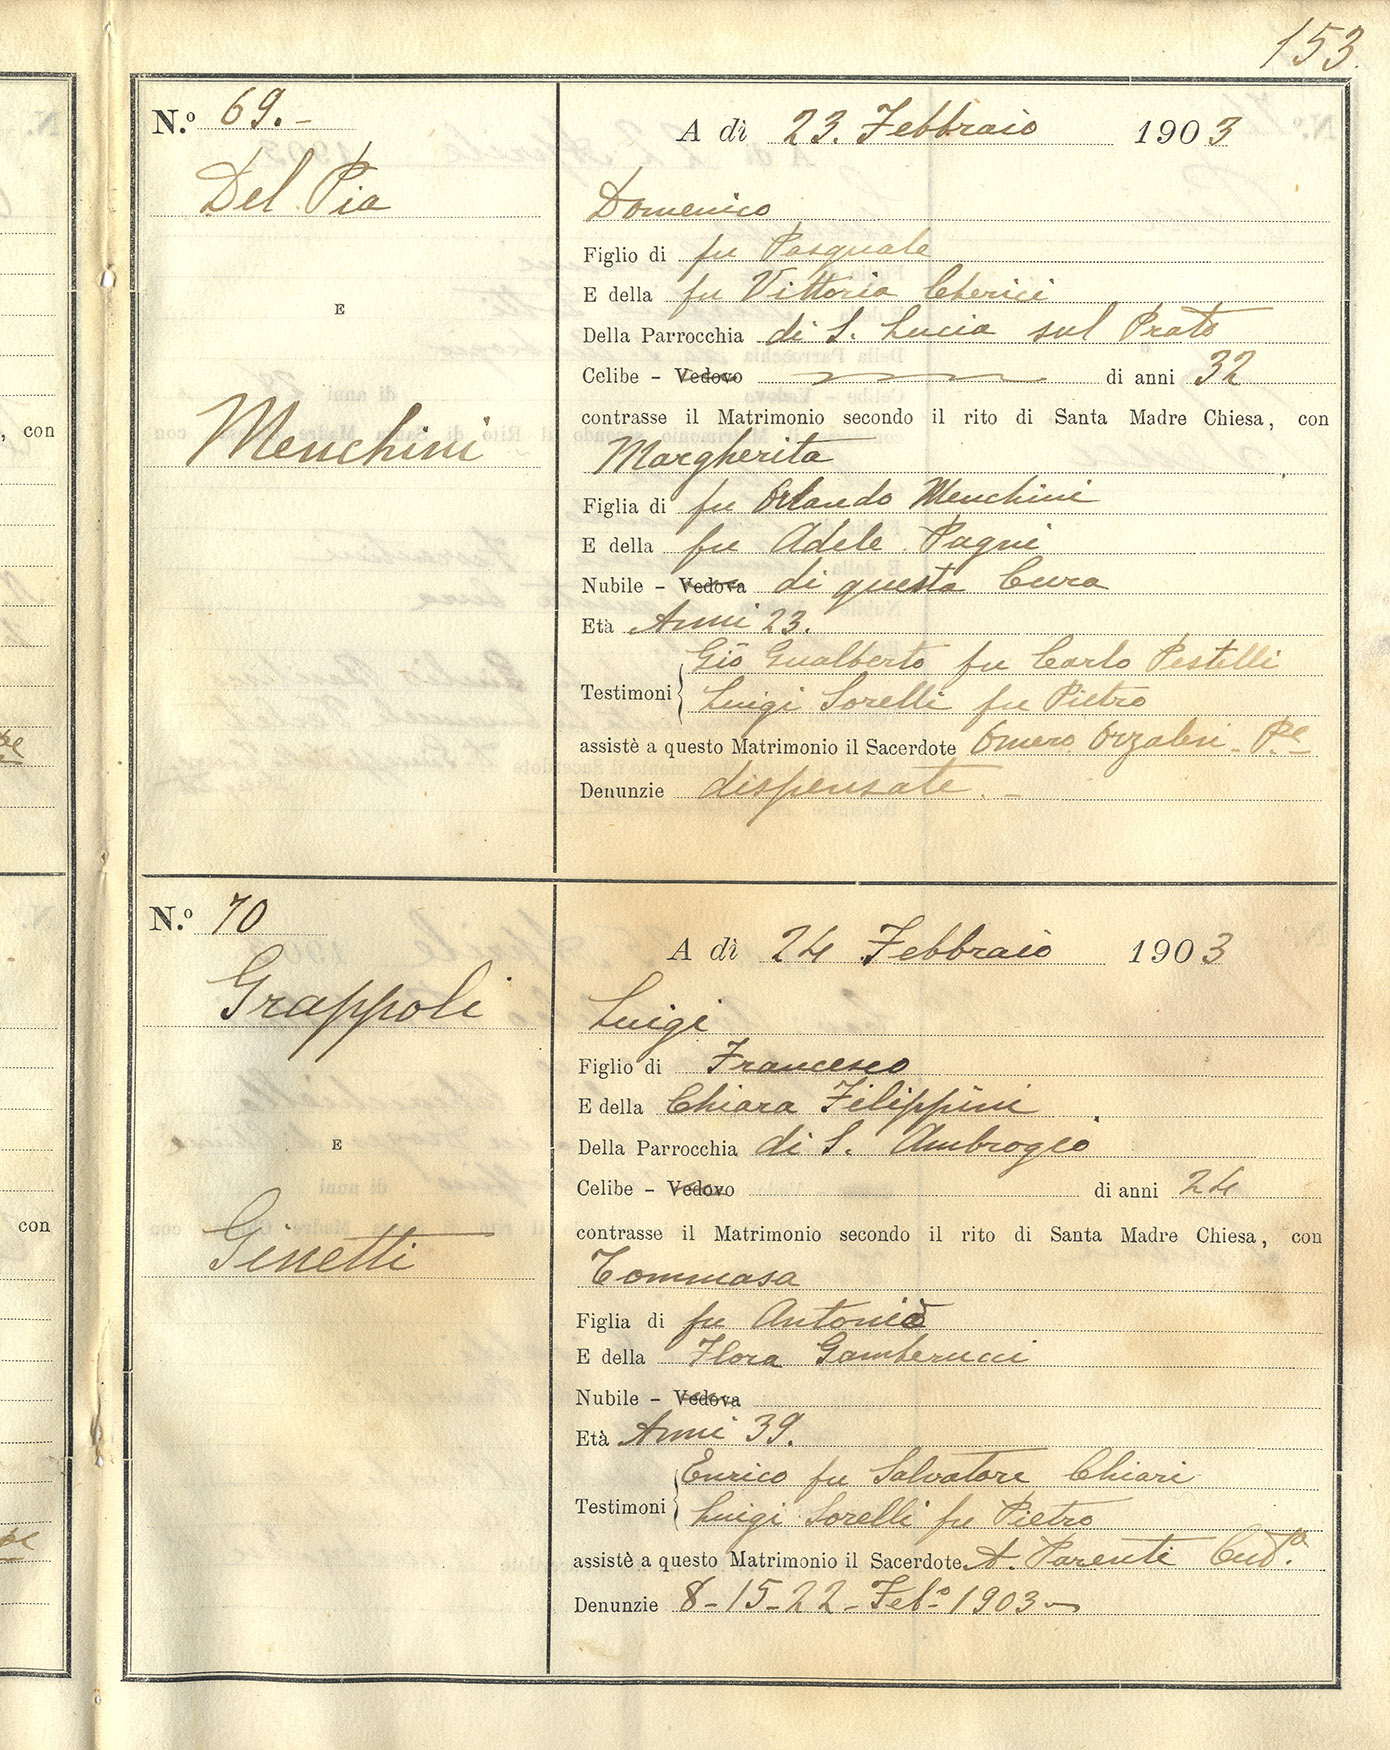 153.
N.o 69.-
Del Pia
E
Menchini
A dì 23. Febbraio 1903
Domenico
Figlio di fu Pasquale
E della fu Vittoria Cherici
Della Parrocchia di S. Lucia sul Prato
Celibe - Vedovo di anni 32
contrasse il Matrimonio secondo il rito di Santa Madre Chiesa, con
Margherita
Figlia di fu Orlando Menchini
E della fu Adele Pagni
Nubile - Vedova di questa Cura
Età Anni 23.
Gio Gualberto fu Carlo Pestelli
Testimoni
Luigi Sorelli fu Pietro
assistè a questo Matrimonio il Sacerdote Omero Orzalesi - Pe
Denunzie dispensate. -
N.o 70
Grappoli
E
Ginetti
A dì 24 Febbraio 1903
Luigi
Figlio di Francesco
E della Chiara Filippini
Della Parrocchia di S. Ambrogio
Celibe - Vedovo di anni 24
contrasse il Matrimonio secondo il rito di Santa Madre Chiesa, con
Tommasa
Figlia di fu Antonio
E della Flora Gamberucci
Nubile - Vedova
Età Anni 39.
Enrico fu Salvatore Chiari
Testimoni
Luigi Sorelli fu Pietro
assistè a questo Matrimonio il Sacerdote A. Parenti
Denunzie 8-15-22-Feb.o 1903
, con
con